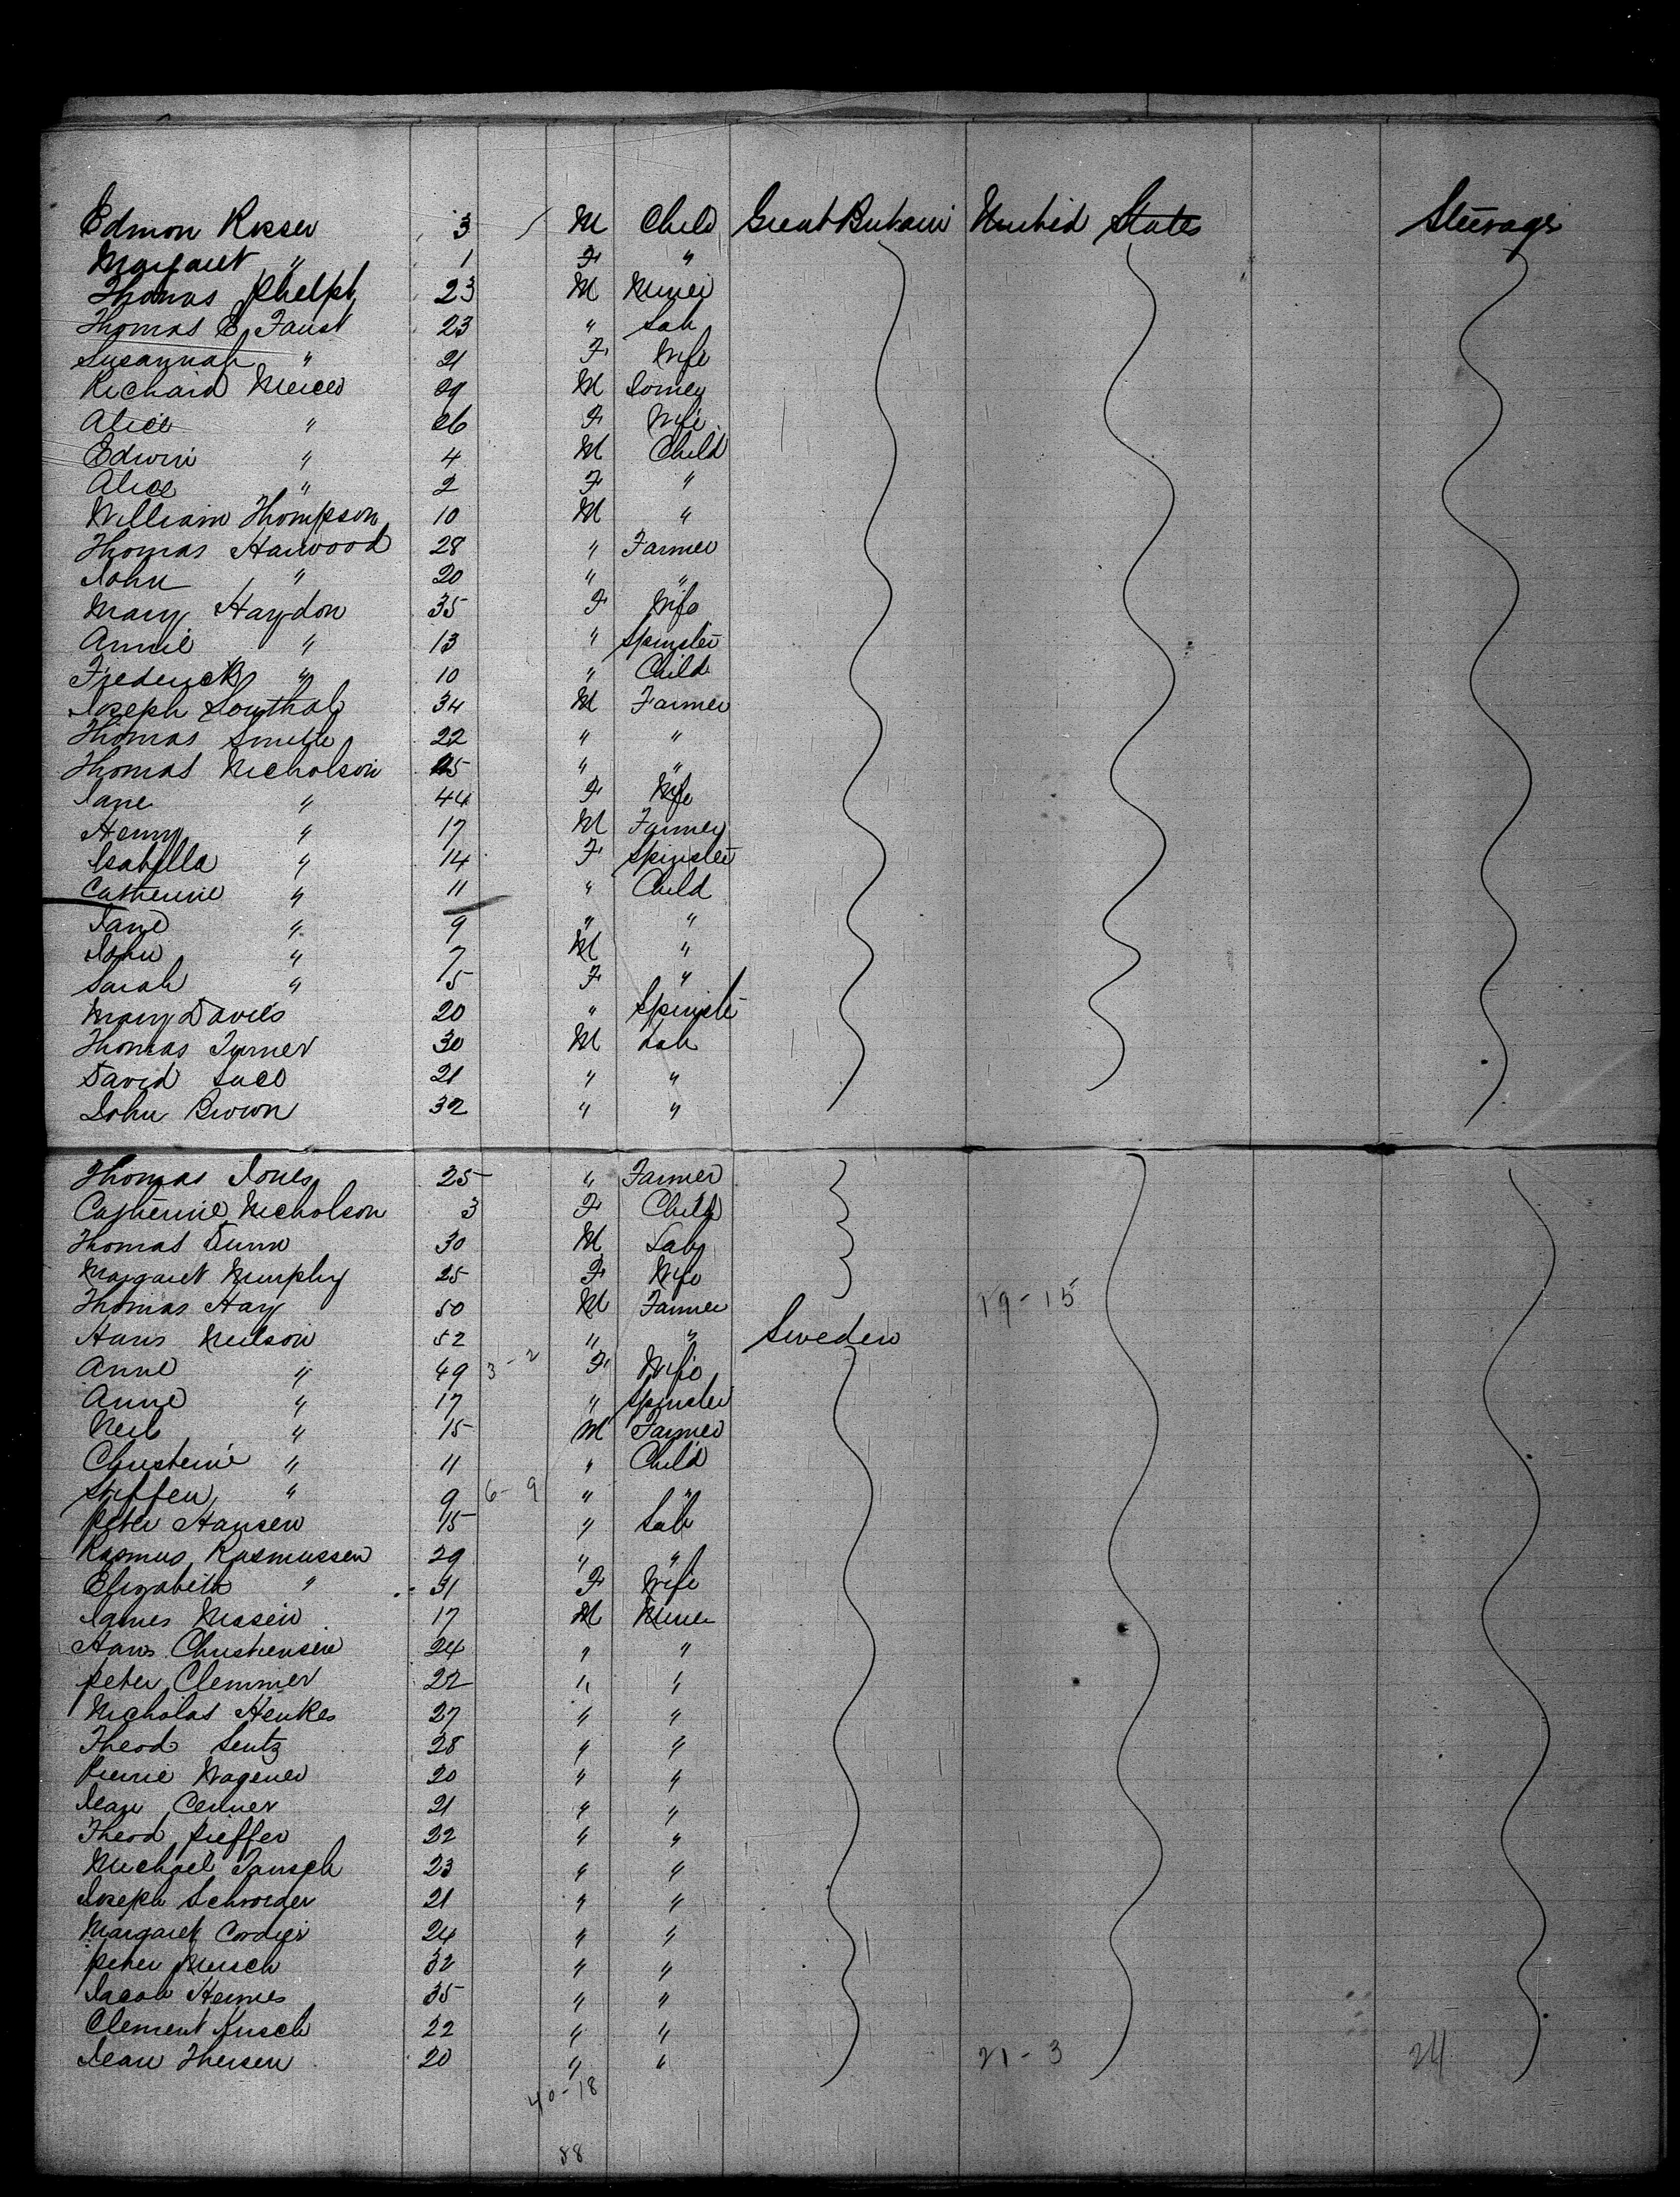 Edmon Rosser 3 / M Child Great Britain United States Steerage
Margaret " 1 F "
Thomas Phelps 23 M Miner
Thomas E Faust 23 " Lab
Susannah " 21 F Wife
Richard Mercer 29 M
Alice " 26 F Wife
Edwin " 4 M Child
Alice " 2 F "
William Thompson 10 M "
Thomas Harwood 28 " Farmer
John " 20 " "
Mary Haydon 35 F Wife
Annie " 13 " Spinster
Frederick " 10 " Child
Joseph Southal 34 M Farmer
Thomas Smith 22 " "
Thomas Nicholson 45 " "
Jane " 44 F Wife
Henry " 17 M Farmer
Isabella " 14 F Spinster
Catherine " 11 " Child
Jane " 9 " "
John " 7 M "
Sarah " 5 F "
Mary Davies 20 " Spinste
Thomas Turner 30 M Lab
David 21 " "
John Brown 32 " "
Thomas Jones 25 " Farmer
Catherine Nicholson 3 F Child
Thomas Dunn 30 M Lab
Margaret Murphy 25 F Wife
Thomas Hay 50 M Farmer 19-15
Hans Neilson 52 " " Sweden
Anne " 49 3-2 F Wife
Anne " 17 " Spinster
Neils " 15 M Farmer
Christeine " 11 " Child
Steffen " 9 6-9 " "
Peter Hansen 15 " Lab
Rasmus Rasmussen 29 " "
Elizabeth " 31 F Wife
James 17 M Miner
Hans Christensen 24 " "
Peter Clemmer 22 " "
Nicholas Henkes 27 " "
Theod Lentz 28 " "
Pierrie Wagener 20 " "
Jean 21 " "
Theod Pieffer 22 " "
Michael 23 " "
Joseph Schroeder 21 " "
Margaret Cordier 24 " "
Peter Mersch 32 " "
Jacob Hermes 35 " "
Clement 22 " "
Jean Theisen 20 " " 21-3 24
40-18
88